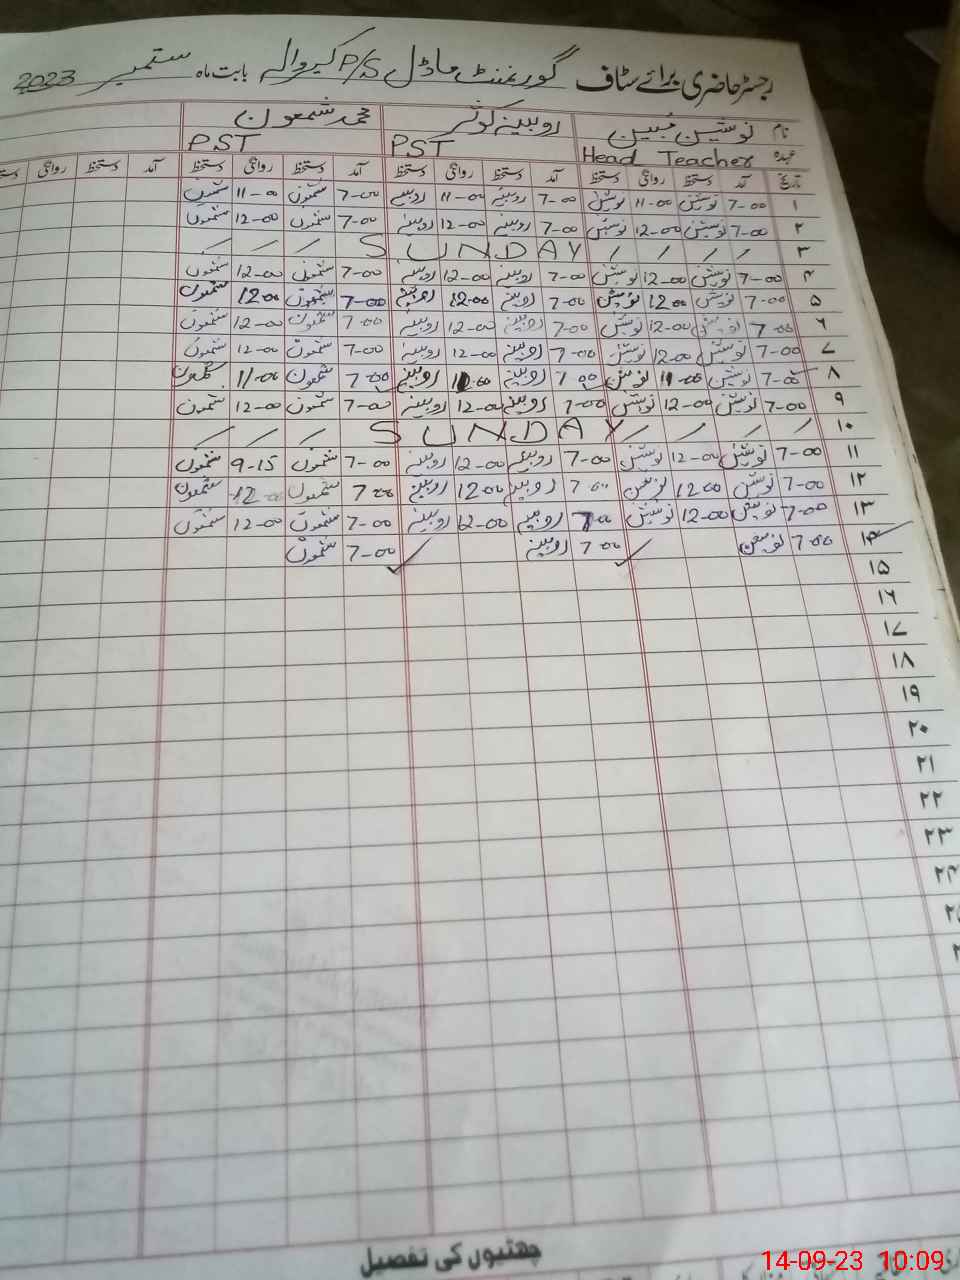 رجسٹر حاضری برائے سٹاف گورنمنٹ ماڈل P/S کیروالہ بابت ماہ ستمبر 2023
نام نوشین مبین روبینہ کوثر محمد شمعون
عہدہ Head Teacher PST PST
تاریخ آمد دستخط روانگی دستخط آمد دستخط روانگی دستخط آمد دستخط روانگی دستخط آمد دستخط روانگی دستخط
۱ 7-00 نوشین 11-00 نوشین 7-00 روبینہ 11-00 روبینہ 7-00 شمعون 11-00 شمعون
۲ 7-00 نوشین 12-00 نوشین 7-00 روبینہ 12-00 روبینہ 7-00 شمعون 12-00 شمعون
۳ / / / / SUNDAY / / /
۴ 7-00 نوشین 12-00 نوشین 7-00 روبینہ 12-00 روبینہ 7-00 شمعون 12-00 شمعون
۵ 7-00 نوشین 12 00 نوشین 7-00 روبینہ 12-00 روبینہ 7-00 شمعون 12 00 شمعون
۶ 7-00 نوشین 12-00 نوشین 7-00 روبینہ 12-00 روبینہ 7-00 شمعون 12-00 شمعون
۷ 7-00 نوشین 12-00 نوشین 7-00 روبینہ 12-00 روبینہ 7-00 شمعون 12-00 شمعون
۸ 7-00 نوشین 11-00 نوشین 7 00 روبینہ 11-00 روبینہ 7-00 شمعون 11-00 شمعون
۹ 7-00 نوشین 12-00 نوشین 7-00 روبینہ 12-00 روبینہ 7-00 شمعون 12-00 شمعون
۱۰ / / / / SUNDAY / / /
۱۱ 7-00 نوشین 12-00 نوشین 7-00 روبینہ 12-00 روبینہ 7-00 شمعون 9-15 شمعون
۱۲ 7-00 نوشین 12 00 نوشین 7-00 روبینہ 12 00 روبینہ 7 00 شمعون 12-00 شمعون
۱۳ 7-00 نوشین 12-00 نوشین 7-00 روبینہ 12-00 روبینہ 7-00 شمعون 12-00 شمعون
۱۴ 7-00 نوشین 7-00 روبینہ 7-00 شمعون
۱۵
۱۶
۱۷
۱۸
۱۹
۲۰
۲۱
۲۲
۲۳
۲۴
چھٹیوں کی تفصیل
14-09-23 10:09